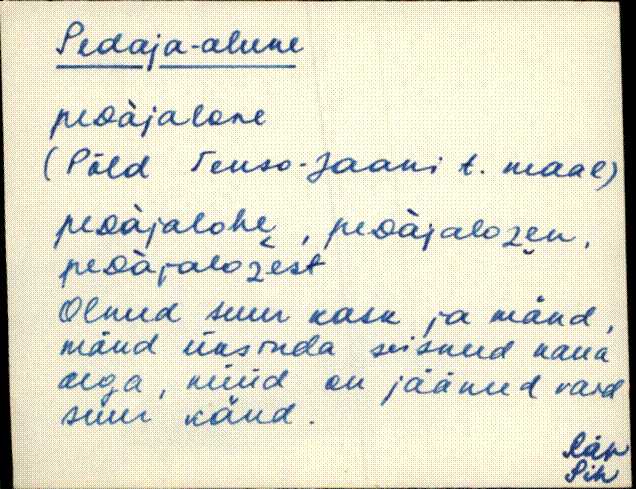 Pedaja-alune
peᴅàjalone
(Põld Tenso-Jaani t. maal)
peᴅàjalohe, peᴅàjalozen,
peᴅàjalozest
Olnud suur kask ja mänd,
mänd üksinda seisnud kaua
aega, nüüd on jäänud vaid
suur känd.
Räp